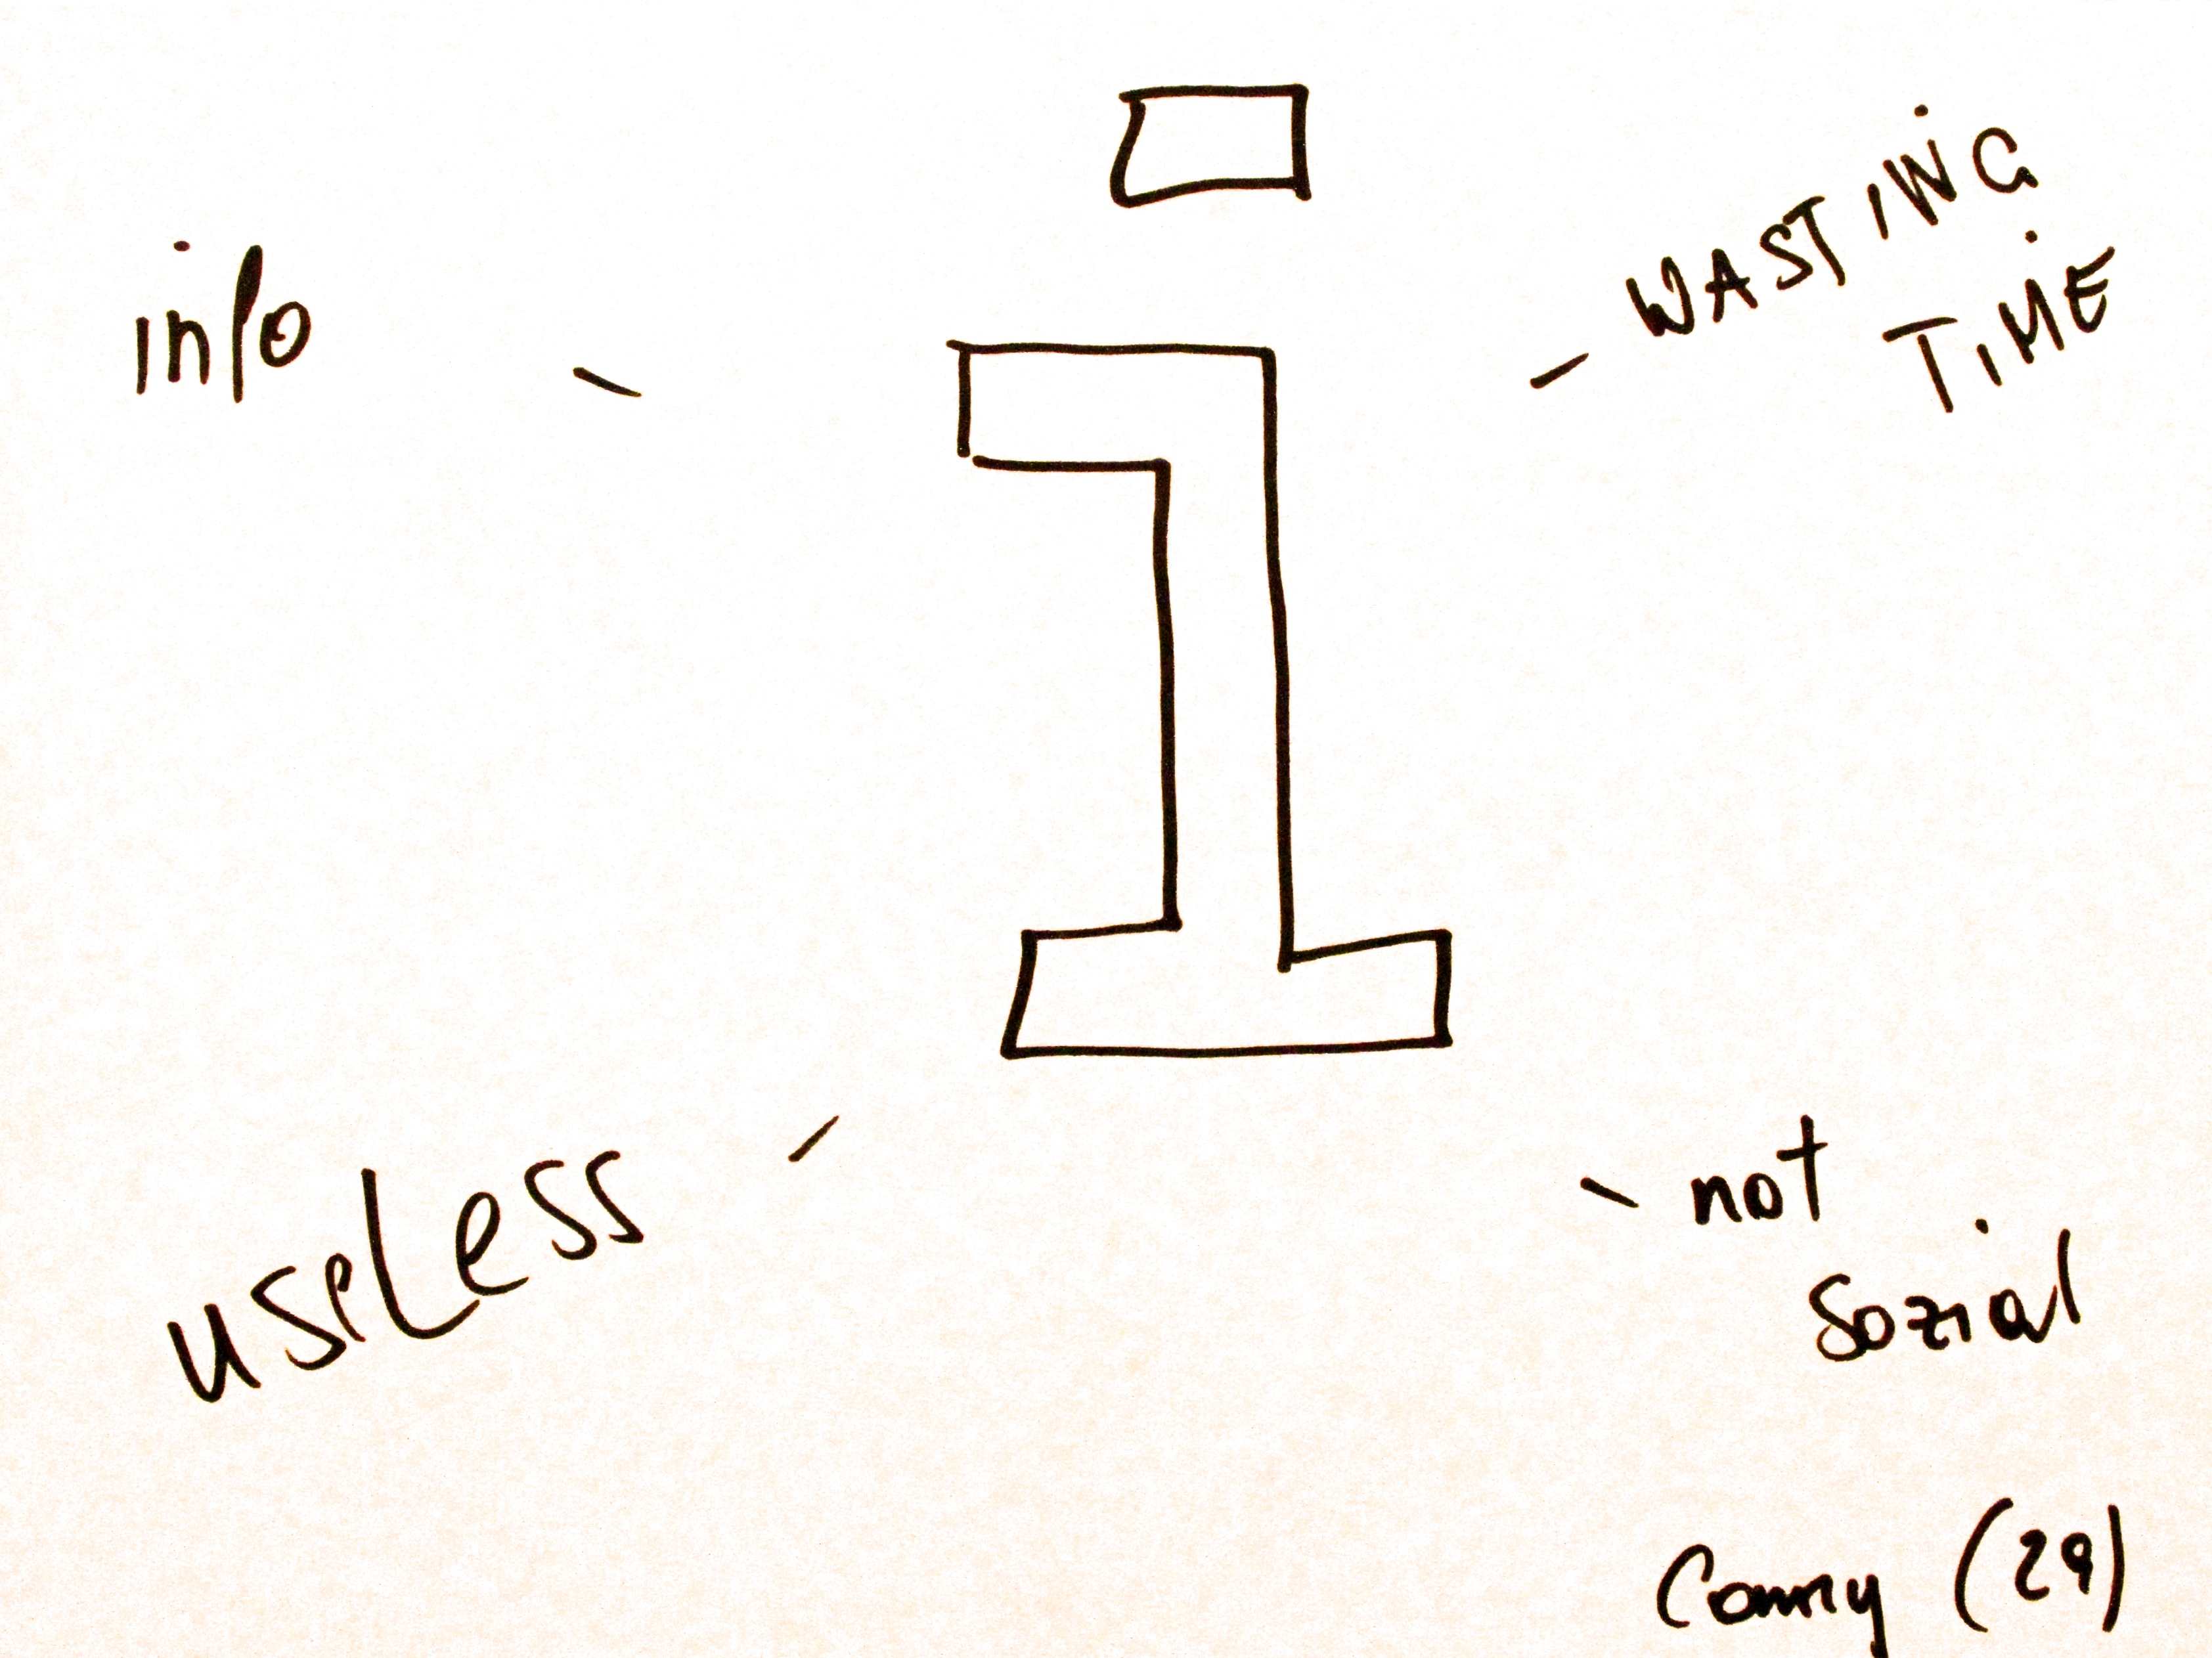 i
info
WASTING
TIME
useless
not
sozial
Conny (29)